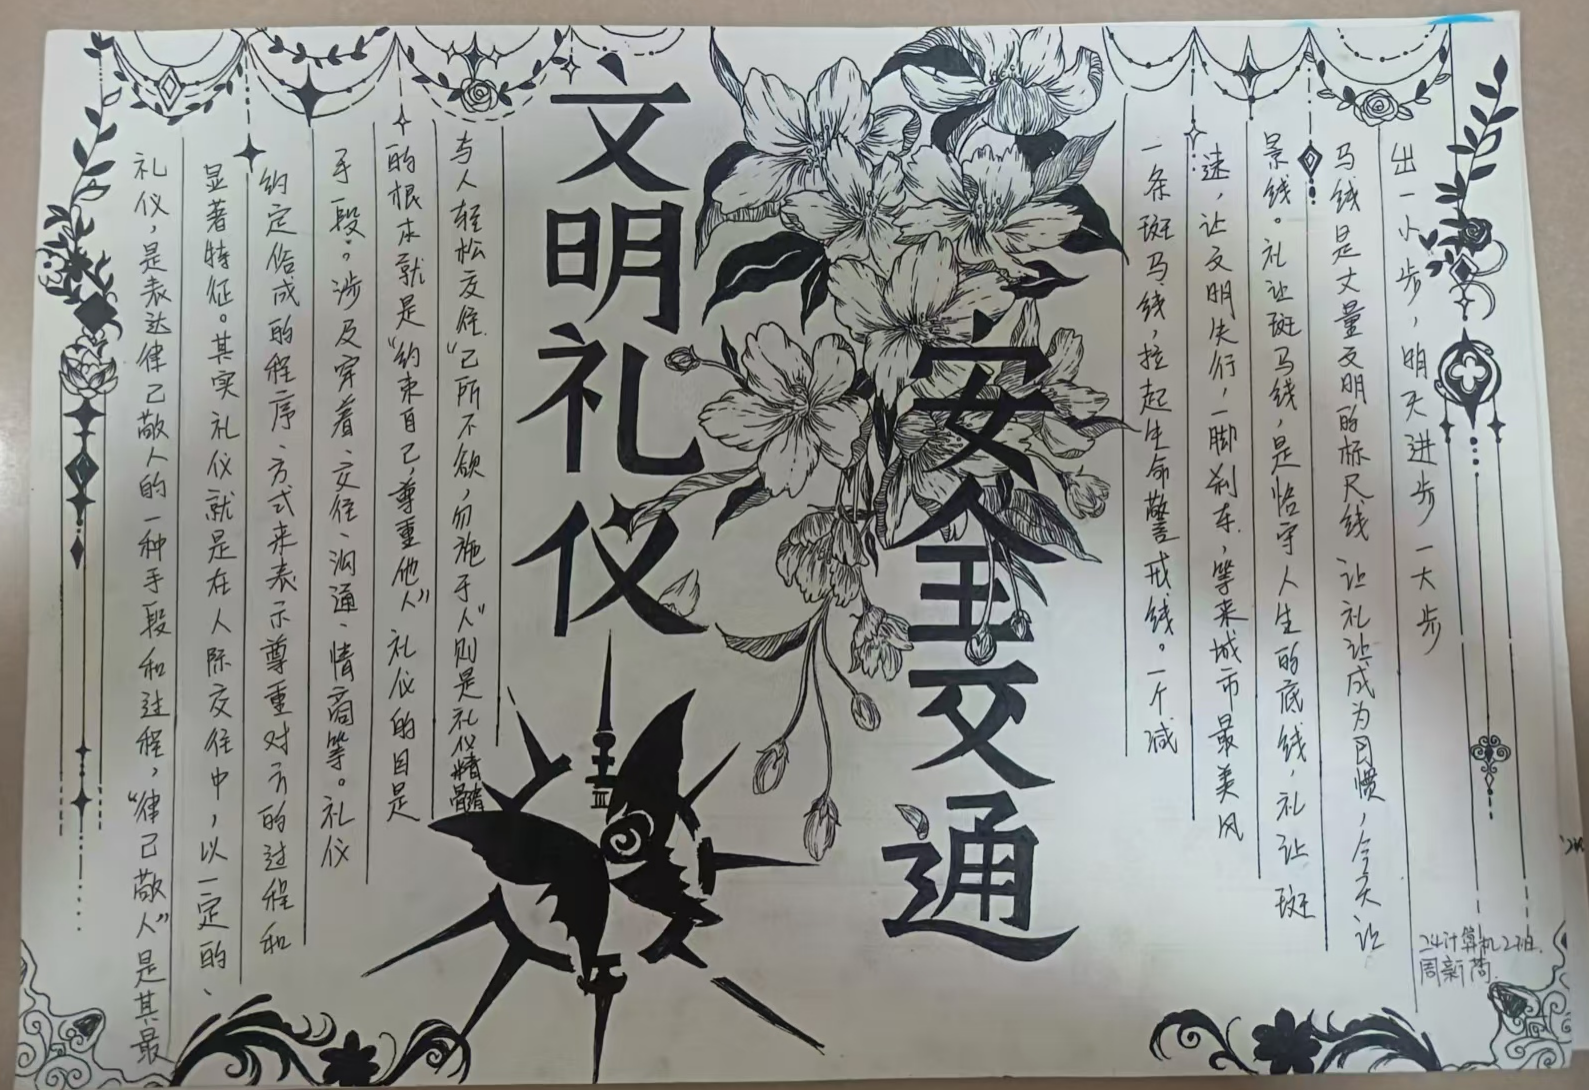 礼仪,是表达律己敬人的一种手段和过程,“律己敬人”是其最
显著特征。其实礼仪就是在人际交往中,以一定的、
约定俗成的程序、方式来表示尊重对方的过程和
手段。涉及穿着、交往、沟通、情商等。礼仪
的根本就是“约束自己,尊重他人”礼仪的目是
与人轻松交往.“己所不欲,勿施于人”则是礼仪精髓
文明礼仪
安全交通
一条斑马线,拉起生命警戒线。一个减
速,让文明先行,一脚刹车,等来城市最美风
景线。礼让斑马线,是恪守人生的底线,礼让斑
马线是丈量文明的标尺线 让礼让成为习惯,今天让
出一小步,明天进步一大步
24计算机2班.
周新